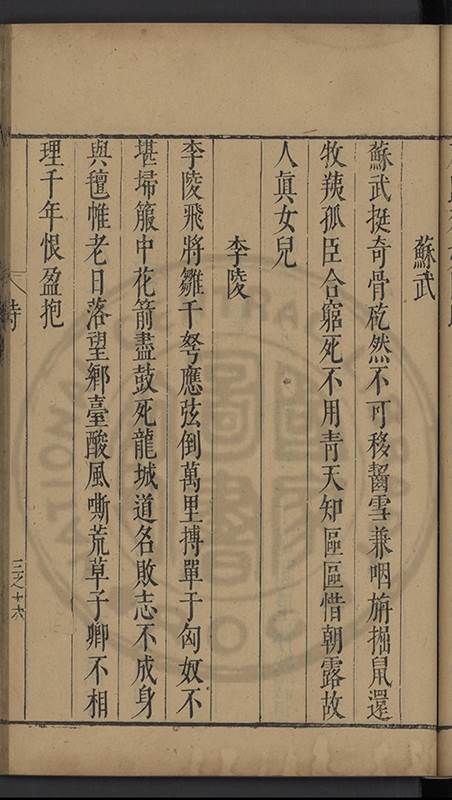 蘇武
蘇武挺奇骨矻然不可移齧雪兼咽旃掘鼠還
牧羝孤臣合窮死不用青天知區區惜朝露故
人真女兒
李陵
李陵飛將雛千弩應弦倒萬里搏單于匈奴不
堪埽箙中花箭盡鼓死龍城道名敗志不成身
與氊帷老日落望鄉臺酸風嘶荒草子卿不相
理千年恨盈抱
詩
三之十六